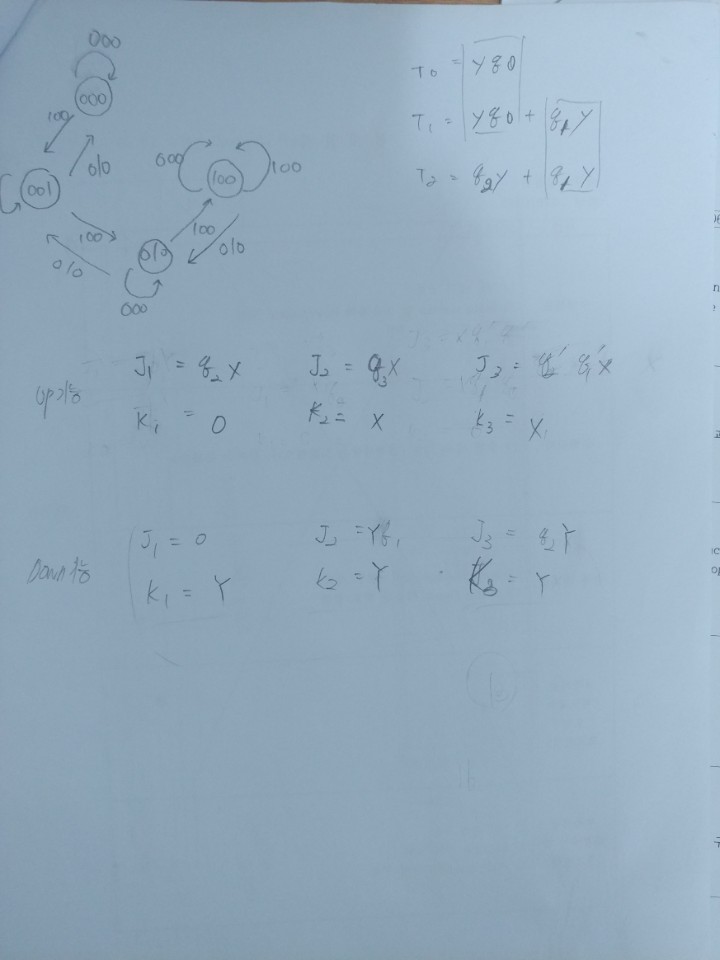 000
000
100
010
001
100
010
000
100
100
100
010
010
000
T0 = yq0
T1 = yq0 + q1y
T2 = q2y + q1y
J1 = q2x J2 = q3x J3 = q2' q1'x
K1 = 0 K2 = x K3 = x
J1 = 0 J2 = Yq1 J3 = q2Y
K1 = Y K2 = Y K3 = Y